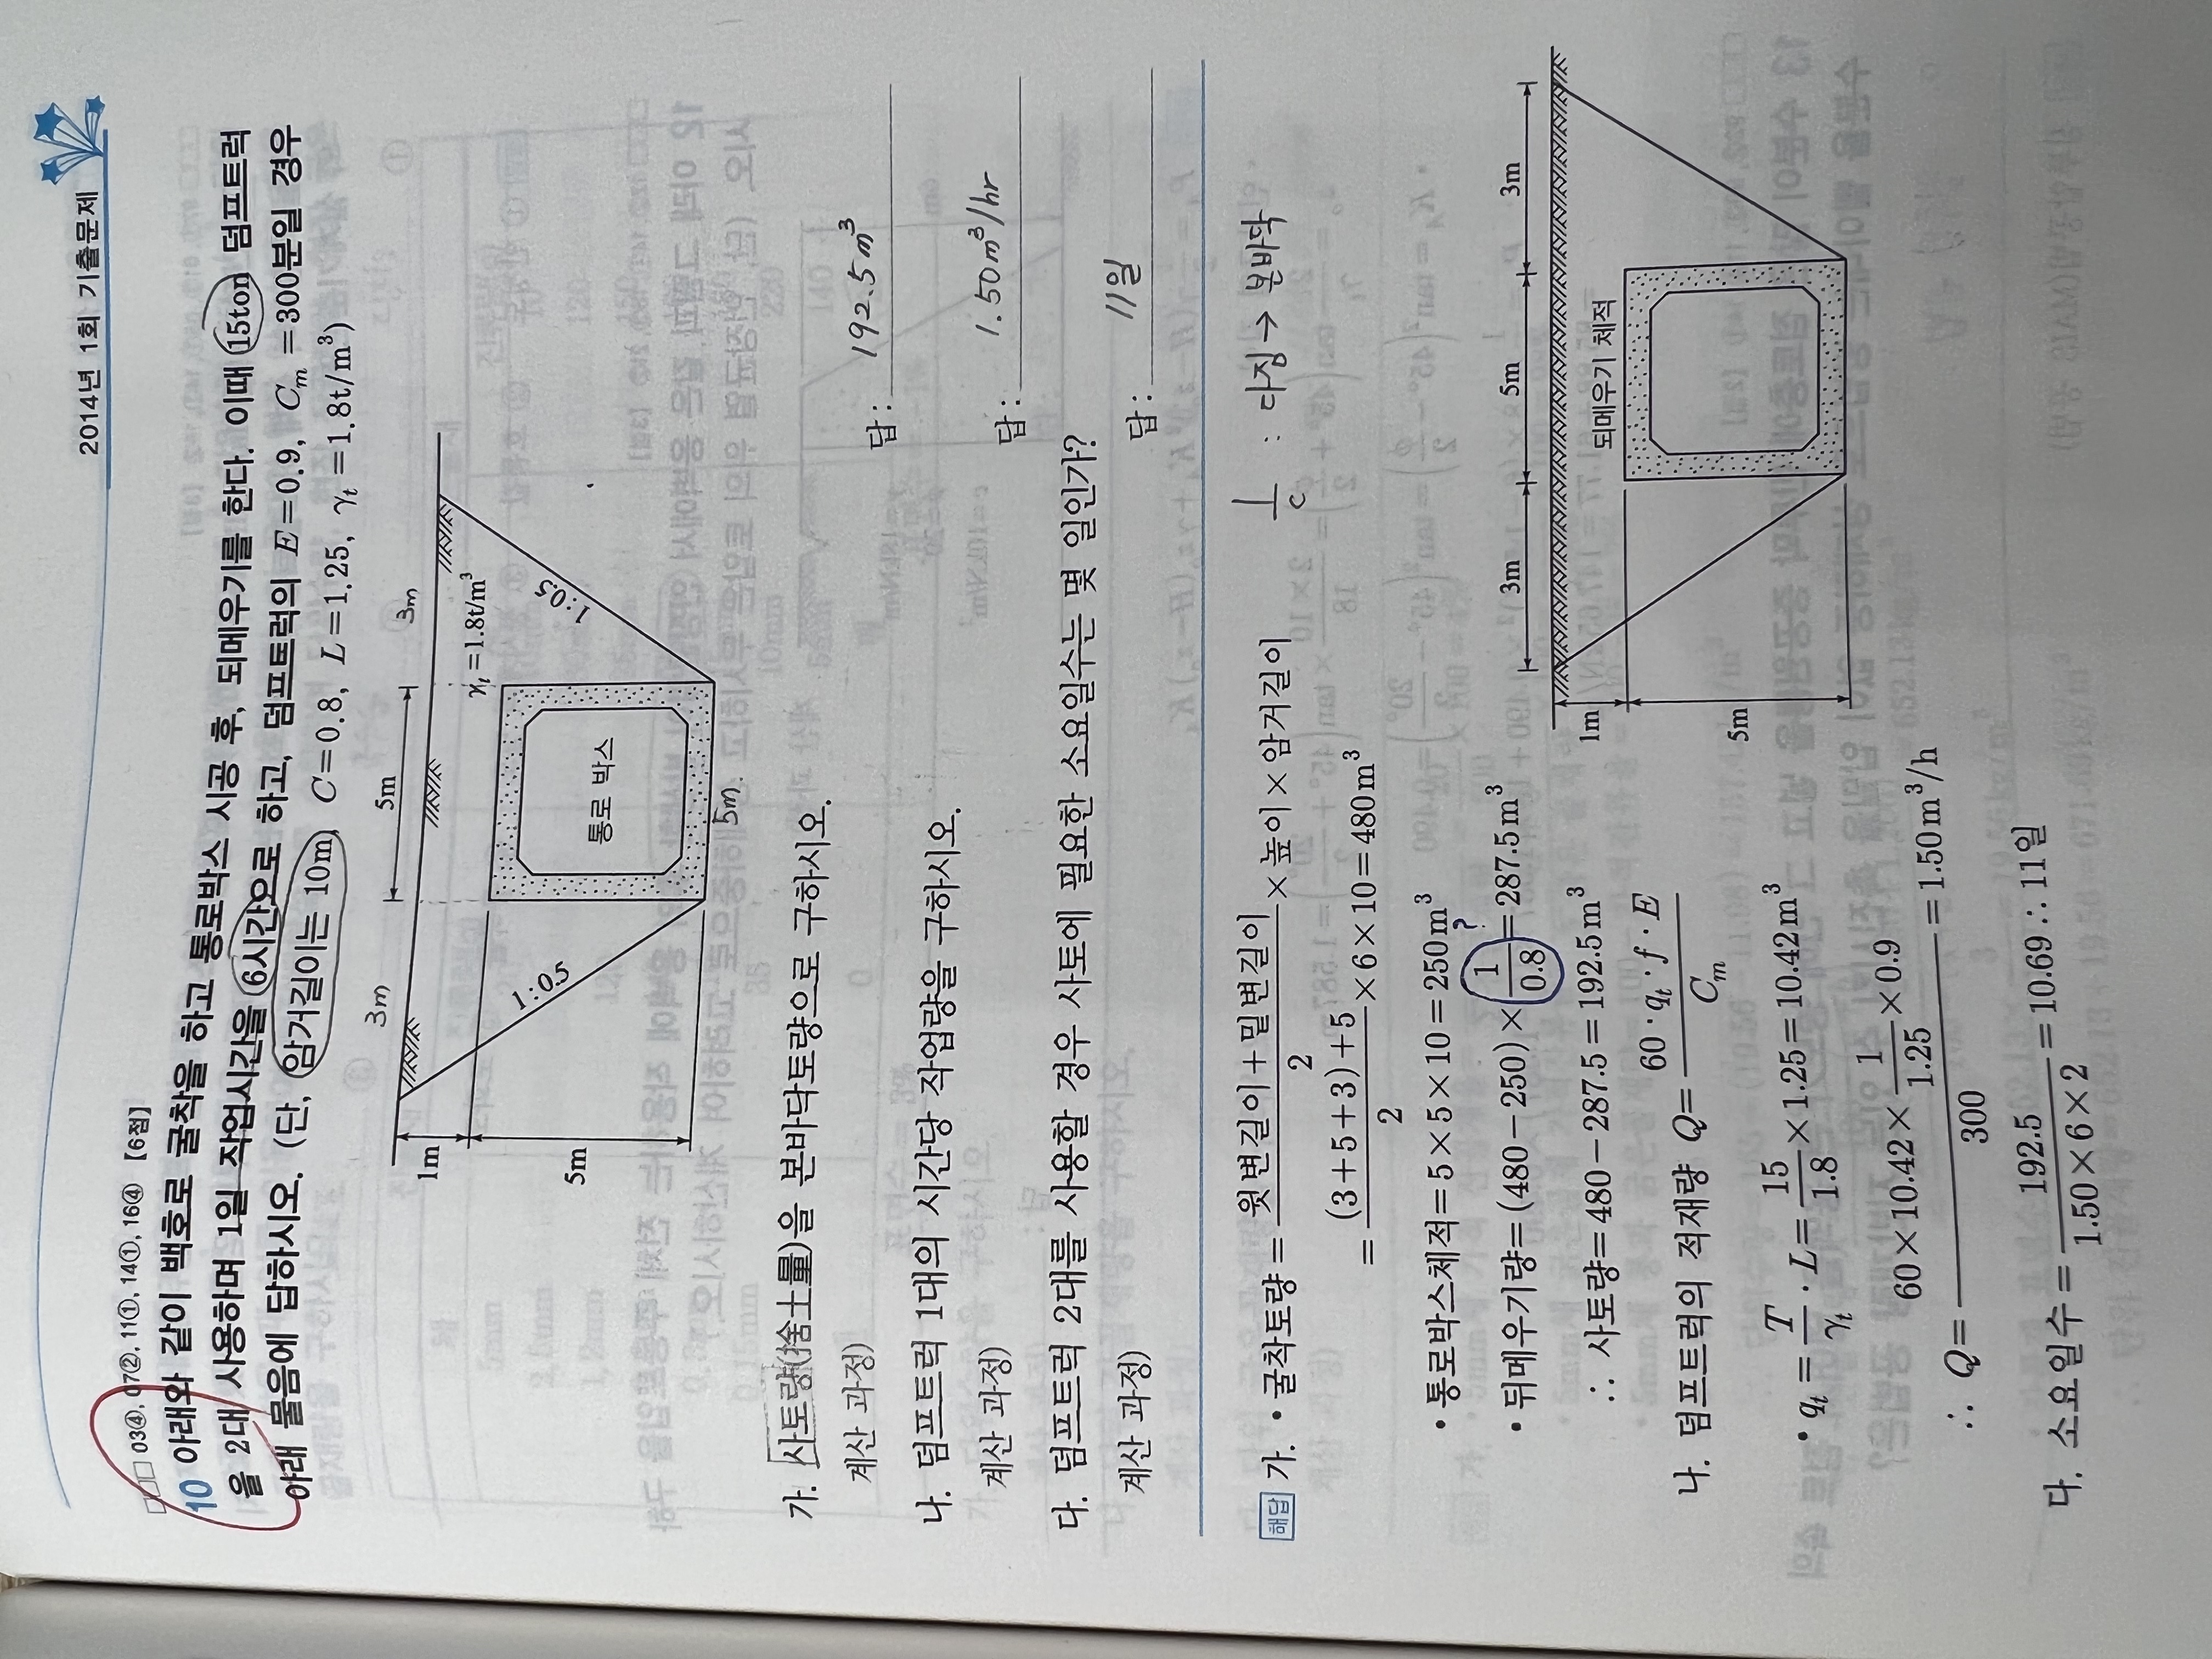 2014년 1회 기출문제
□□□ 03④, 07②, 11①, 14①, 16④ [6점]
10 아래와 같이 백호로 굴착을 하고 통로박스 시공 후, 되메우기를 한다. 이때 15ton 덤프트럭
을 2대 사용하며 1일 작업시간을 6시간으로 하고, 덤프트럭의 E=0.9, Cm=300분일 경우
아래 물음에 답하시오. (단, 암거길이는 10m, C=0.8, L=1.25, γt=1.8t/m³)
3m 5m 3m
1m
γt=1.8t/m³
1:0.5 통로 박스 1:0.5
5m
5m
가. 사토량(捨土量)을 본바닥토량으로 구하시오.
계산 과정) 답: 192.5m³
나. 덤프트럭 1대의 시간당 작업량을 구하시오.
계산 과정) 답: 1.50m³/hr
다. 덤프트럭 2대를 사용할 경우 사토에 필요한 소요일수는 몇 일인가?
계산 과정) 답: 11일
해답 가. • 굴착토량 = (윗변길이+밑변길이)/2 × 높이 × 암거길이
1/c : 다짐 → 본바닥
= ((3+5+3)+5)/2 ×6×10=480m³
• 통로박스체적=5×5×10=250m³
• 뒤메우기량=(480−250)×1/0.8=287.5m³
?
∴ 사토량=480−287.5=192.5m³
3m 5m 3m
1m 되메우기 체적
5m
나. 덤프트럭의 적재량 Q= (60·qt·f·E)/Cm
• qt = T/γt · L = 15/1.8 ×1.25=10.42m³
∴ Q= (60×10.42×1/1.25×0.9)/300 =1.50m³/h
다. 소요일수= 192.5/(1.50×6×2) =10.69 ∴ 11일